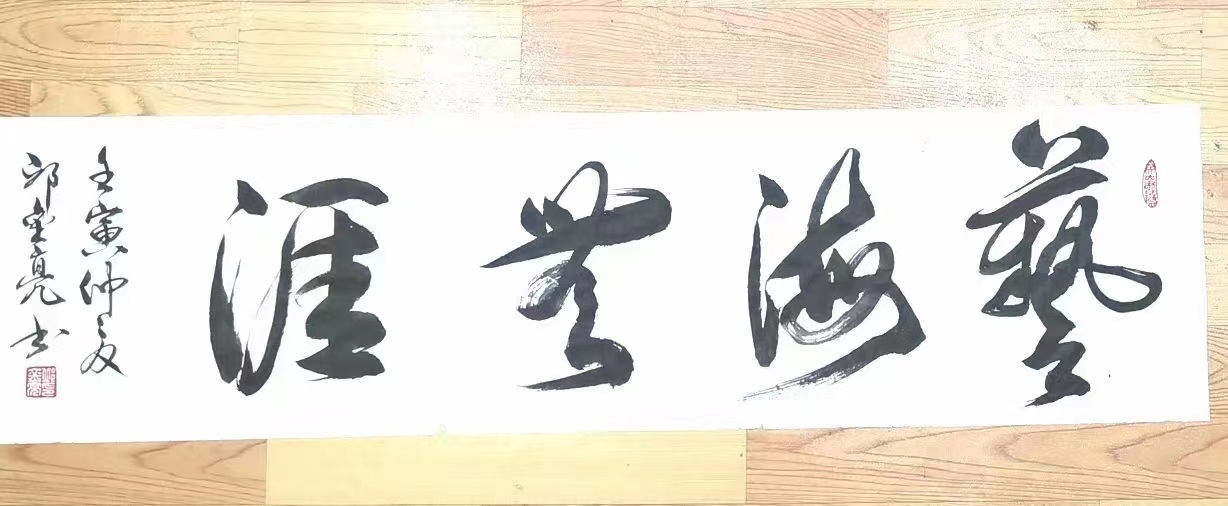 藝海無涯
壬寅仲夏
邱金亮书